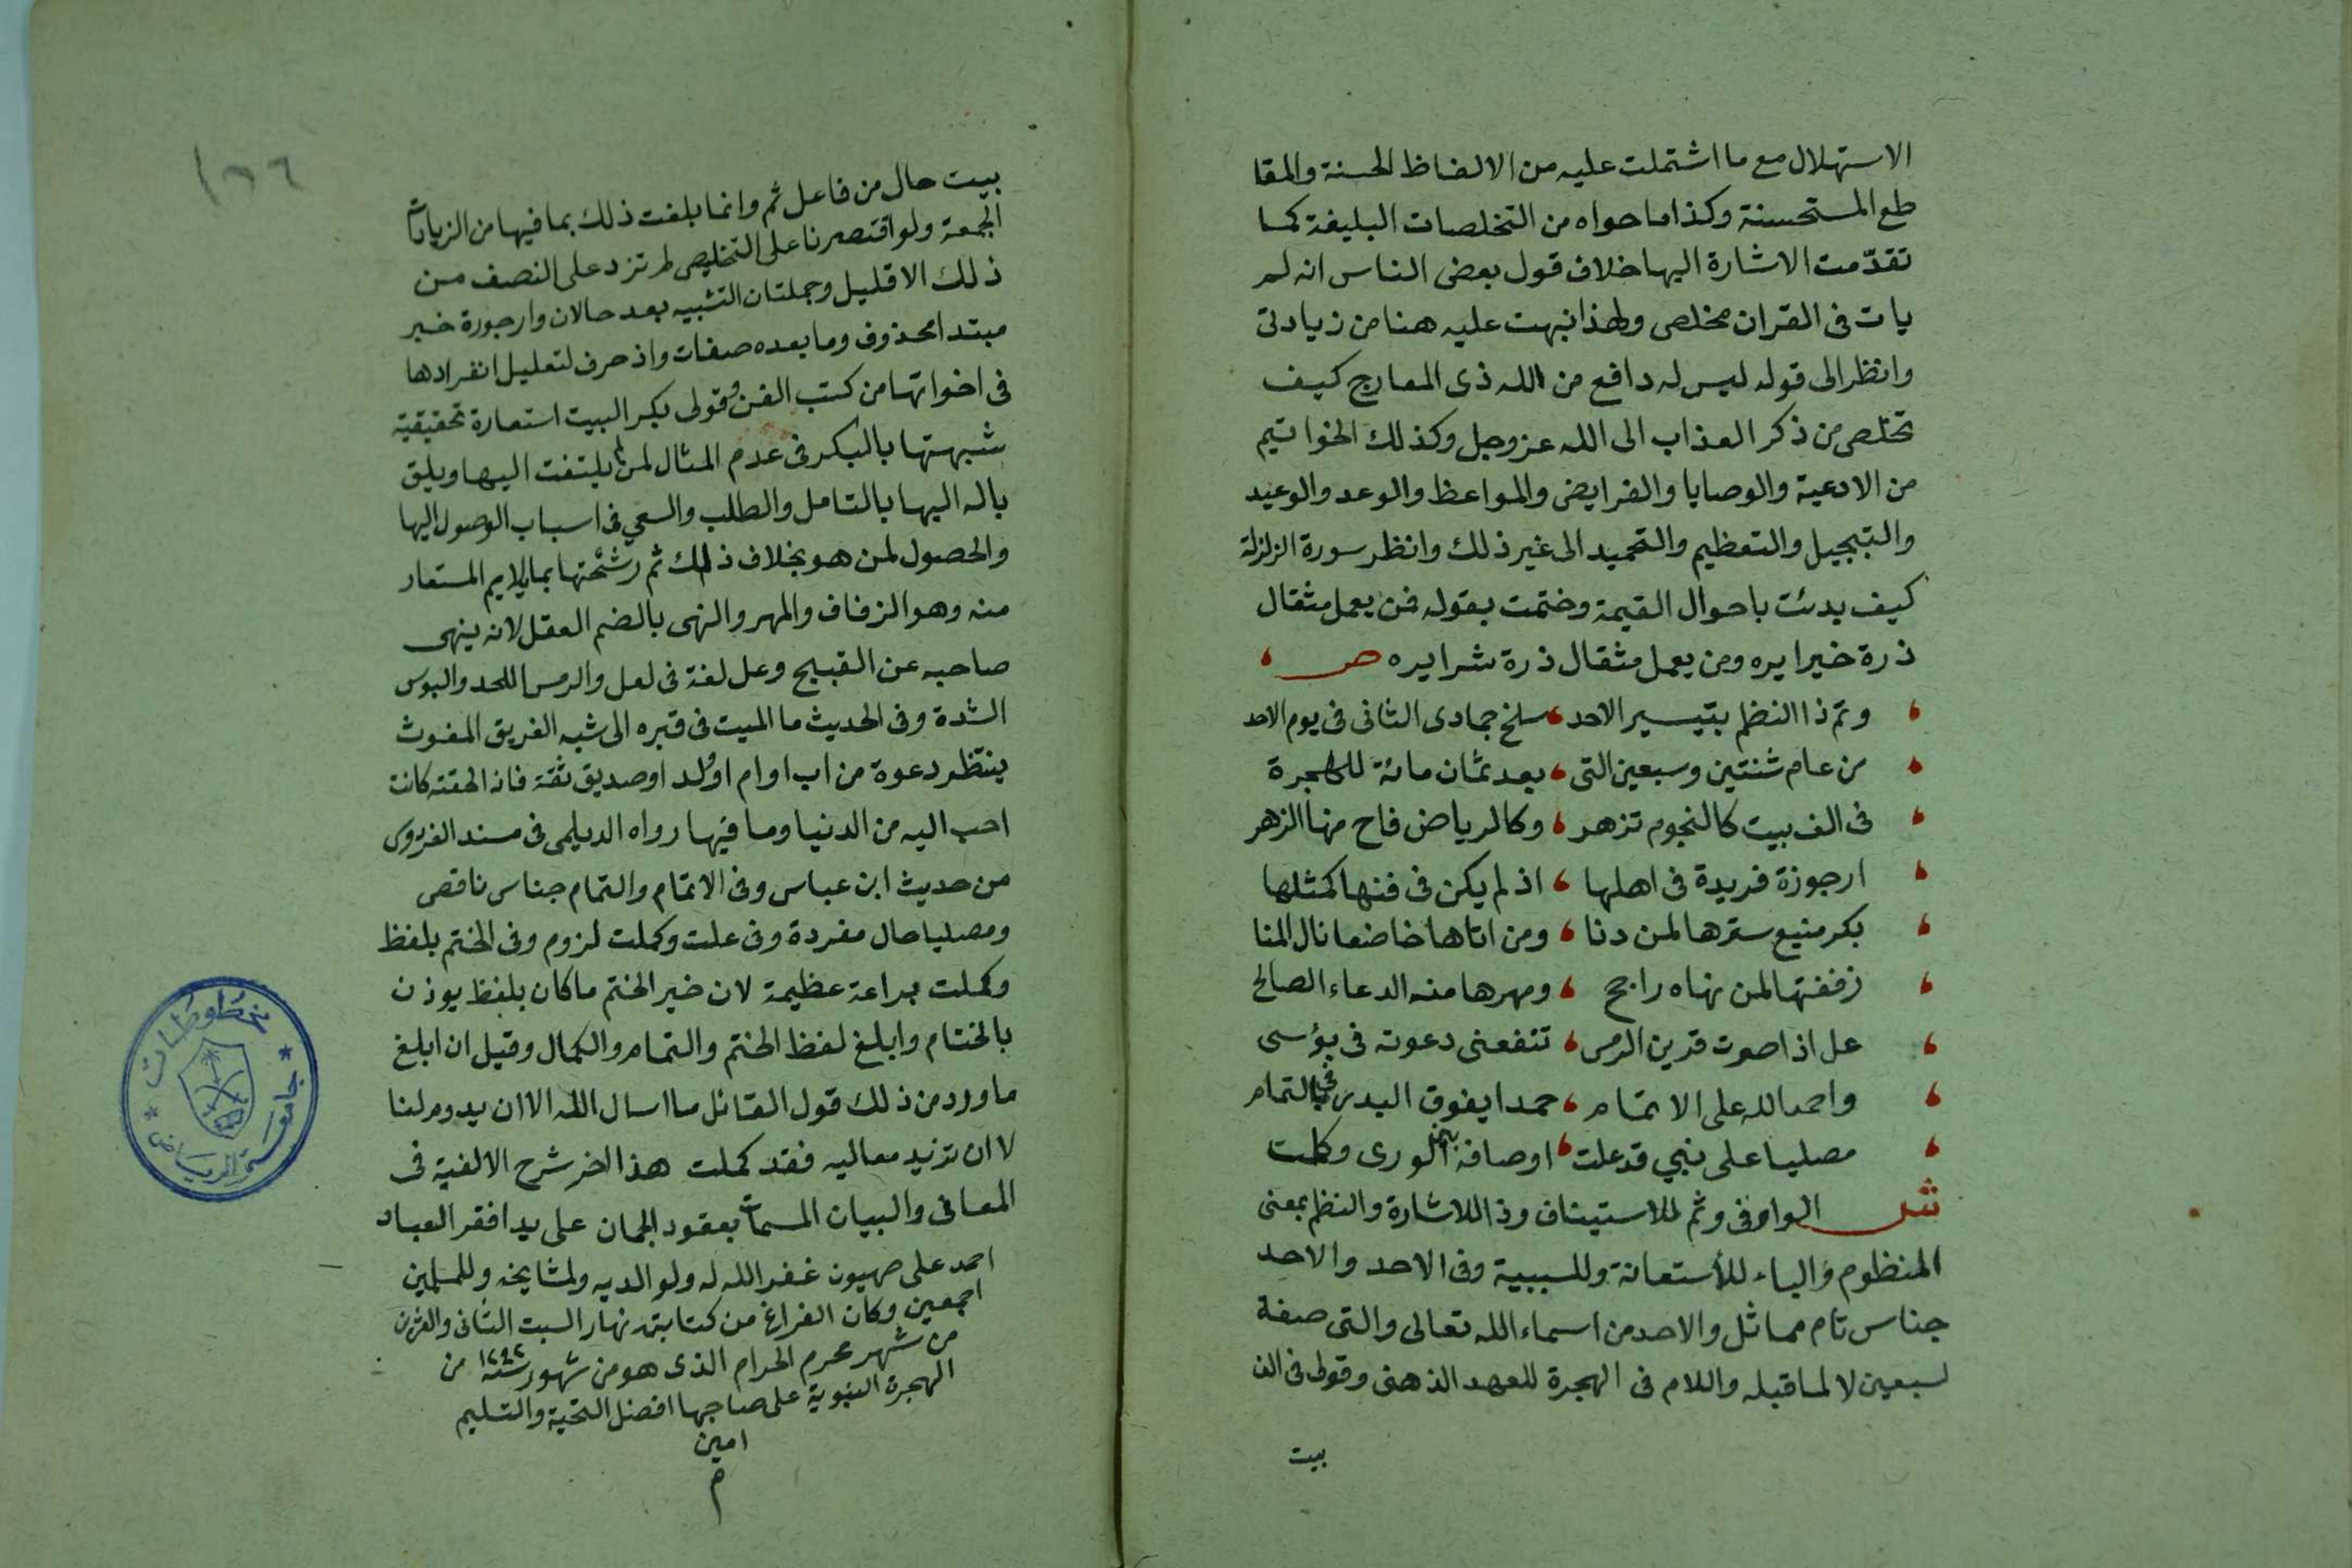 الاستهلال مع ما اشتملت عليه من الالفاظ الحسنة والمقا
طع المستحسنة وكذا ما حواه من التخلصات البليغة كما
تقدّمت الاشارة اليها خلاف قول بعض الناس انه لم
يات فى القران مخلص ولهذا نبهت عليه هنا من زيادتى
وانظر الى قوله ليس له دافع من الله ذى المعارج كيف
تخلص من ذكر العذاب الى الله عز وجل وكذلك الخواتيم
من الادعية والوصايا والفرايض والمواعظ والوعد والوعيد
والتبجيل والتعظيم والتحميد الى غير ذلك وانظر سورة الزلزلة
كيف بدئت باحوال القيمة وختمت بقوله فمن يعمل مثقال
ذرة خيرا يره ومن يعمل مثقال ذرة شرا يره ص
وتم ذا النظم بتيسير الاحد سلخ جمادى الثانى فى يوم الاحد
من عام ثنتين وسبعين التى بعد ثمان مائة للهجرة
فى الف بيت كالنجوم تزهر وكالرياض فاح منها الزهر
ارجوزة فريدة فى اهلها اذ لم يكن فى فنها كمثلها
بكر منيع سترها لمن دنا ومن اتاها خاضعا نال المنا
زففتها لمن نهاه راجح ومهرها منه الدعاء الصالح
عل اذا صوت قرين الرمس تنفعنى دعوته فى بؤسى
واحمد الله على الاتمام حمدا يفوق البدر فى التمام
مصليا على نبي قد علت اوصافه الورى وكملت
ش الواو فى وثم للاستيناف وذا للاشارة والنظم بمعنى
المنظوم والباء للأستعانة وللسببية وفى الاحد والاحد
جناس تام مماثل والاحد من اسماء الله تعالى والتى صفة
لسبعين لا لما قبله واللام فى الهجرة للعهد الذهنى وقولى فى الف
بيت
١٦٦
بيت حال من فاعل ثم وانما بلغت ذلك بما فيها من الزيادات
الجمعة ولو اقتصرنا على التخليص لم تزد على النصف من
ذلك الا قليل وجملتان التشبيه بعد حالان وارجوزة خبر
مبتدا محذوف وما بعده صفات واذ حرف لتعليل انفرادها
فى اخواتها من كتب الفن وقولى بكر البيت استعارة تحقيقية
شبهتها بالبكر فى عدم المثال لمن لم يلتفت اليها ويلق
باله اليها بالتامل والطلب والسعي فى اسباب الوصول اليها
والحصول لمن هو بخلاف ذلك ثم رشّحتها بما يلايم المستعار
منه وهو الزفاف والمهر والنهى بالضم العقل لانه ينهى
صاحبه عن القبيح وعل لغة فى لعل والرمس اللحد والبوس
الشدة وفى الحديث ما الميت فى قبره الى شبه الغريق المغوث
ينتظر دعوة من اب او ام او ولد او صديق ثقة فاذا لحقته كانت
احب اليه من الدنيا وما فيها رواه الديلمى فى مسند الفردوس
من حديث ابن عباس وفى الاتمام والتمام جناس ناقص
ومصليا حال مفردة وفى علت وكملت لزوم وفى الختم بلفظ
وكملت براعة عظيمة لان خير الختم ما كان بلفظ يوذن
بالختام وابلغ لفظ الختم والتمام والكمال وقيل ان ابلغ
ما ورد من ذلك قول القائل ما اسال الله الا ان يدوم لنا
لا ان تزيد معاليه فقد كملت هذا اخر شرح الالفية فى
المعانى والبيان المسمات بعقود الجمان على يد افقر العباد
احمد على صهيون غفر الله له ولوالديه ولمشايخه وللمسلمين
اجمعين وكان الفراغ من كتابته نهار السبت الثانى والعشرين
من شهر محرم الحرام الذى هو من شهور سنة ١٢٩٢ من
الهجرة النبوية على صاحبها افضل التحية والتسليم
امين
م
جامعة الرياض
مخطوطات